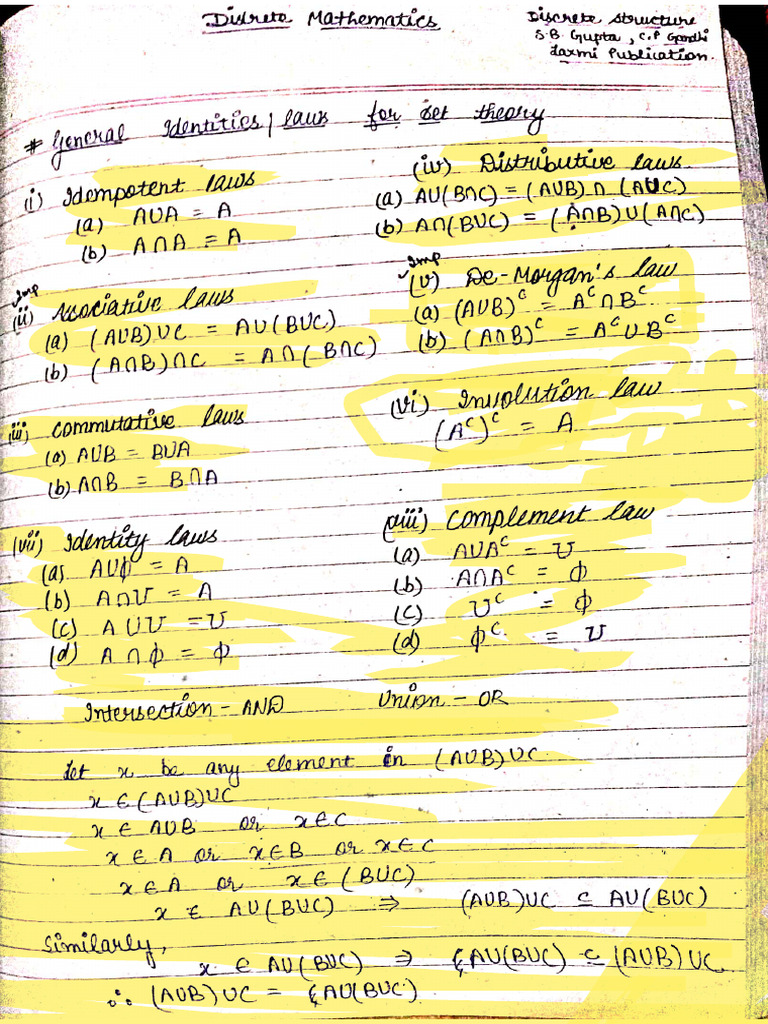 Disrete Mathematics
Discrete Structure
S.B. Gupta, C.P Gandhi
Laxmi Publication.
# General Identities/laws for set theory
(i) Idempotent laws
(a) A∪A = A
(b) A∩A = A
Imp
(ii) Asociative laws
(a) (A∪B)∪C = A∪(B∪C)
(b) (A∩B)∩C = A∩(B∩C)
(iii) Commutative laws
(a) A∪B = B∪A
(b) A∩B = B∩A
(iv) Distributive laws
(a) A∪(B∩C) = (A∪B)∩(A∪C)
(b) A∩(B∪C) = (A∩B)∪(A∩C)
Imp
(v) De-Morgan's law
(a) (A∪B)ᶜ = Aᶜ∩Bᶜ
(b) (A∩B)ᶜ = Aᶜ∪Bᶜ
(vi) Involution law
(Aᶜ)ᶜ = A
(vii) Identity laws
(a) A∪ϕ = A
(b) A∩U = A
(c) A∪U = U
(d) A∩ϕ = ϕ
(viii) Complement law
(a) A∪Aᶜ = U
(b) A∩Aᶜ = ϕ
(c) Uᶜ = ϕ
(d) ϕᶜ = U
Intersection - AND Union - OR
Let x be any element in (A∪B)∪C
x ∈ (A∪B)∪C
x ∈ A∪B or x∈C
x ∈ A or x∈B or x∈C
x ∈ A or x∈(B∪C)
x ∈ A∪(B∪C) ⇒ (A∪B)∪C ⊆ A∪(B∪C)
Similarly,
x ∈ A∪(B∪C) ⇒ A∪(B∪C) ⊆ (A∪B)∪C
∴ (A∪B)∪C = A∪(B∪C)